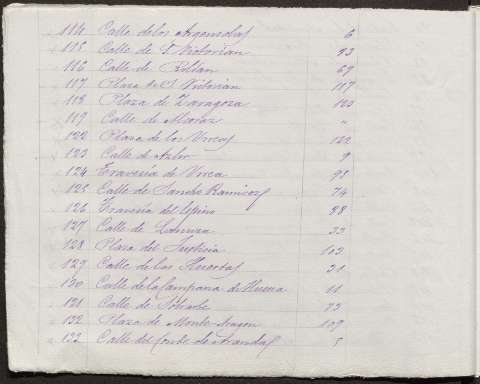 114 Calle de los Argensolas 6
115 Calle de S. Victorian 93
116 Calle de Roldan 69
117 Plaza de S. Victorian 117
118 Plaza de Zaragoza 123
119 Calle de Alcoraz "
122 Plaza de los Urreas 122
123 Calle de Azlor 9
124 Travesia de Urrea 95
125 Calle de Sancho Ramirez 74
126 Travesia del Espino 38
127 Calle de Lanuza 33
128 Plaza del Justicia 103
129 Calle de las Huertas 31
130 Calle de la Campana de Huesca 11
131 Calle de Sobrarbe 73
132 Plaza de Monte-Aragon 109
133 Calle del Conde de Arandas